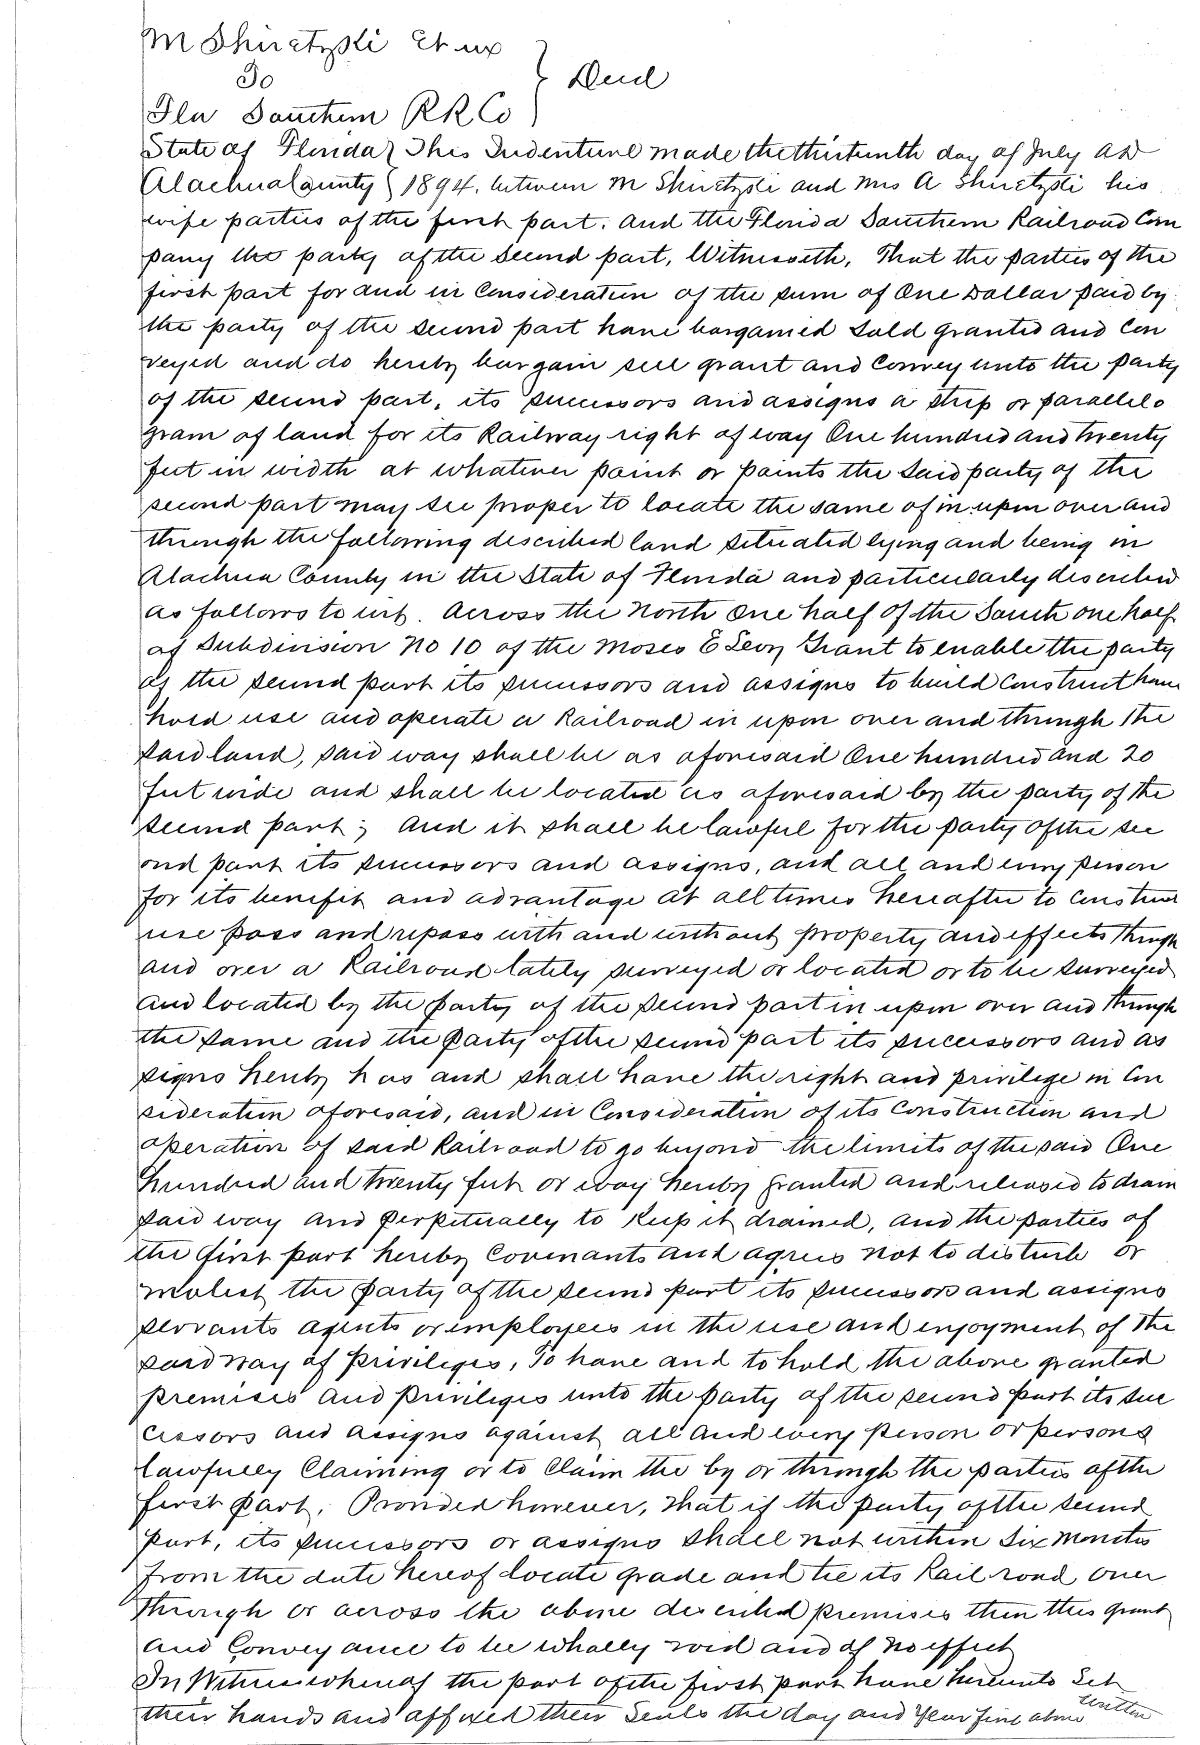 M Shiretzski et ux
To } Deed
Fla Southern R R Co
State of Florida } This Indenture made the thirteenth day of July AD
Alachua County } 1894. between M Shiretzski and Mrs A Shiretzski his
wife parties of the first part. and the Florida Southern Railroad Com
pany the party of the second part, Witnesseth, That the parties of the
first part for and in Consideration of the sum of One Dollar paid by
the party of the second part have bargained sold granted and Con
veyed and do hereby bargain sell grant and Convey unto the party
of the second part, its successors and assigns a strip or parallelo
gram of land for its Railway right of way One hundred and twenty
feet in width at whatever point or points the said party of the
second part may see proper to locate the same of in upon over and
through the following described land situated lying and being in
Alachua County in the State of Florida and particularly described
as follows to wit. Across the North One half of the South one half
of Subdivision No 10 of the Moses E Levy Grant to enable the party
of the second part its successors and assigns to build Construct have
hold use and operate a Railroad in upon over and through the
said land, said way shall be as aforesaid One hundred and 20
feet wide and shall be located as aforesaid by the party of the
second part; And it shall be lawful for the party of the sec
ond part its successors and assigns, and all and every person
for its benefit and advantage at all times hereafter to Construct
use pass and repass with and without property and effects through
and over a Railroad lately surveyed or located or to be surveyed
and located by the party of the second part in upon over and through
the same and the party of the second part its successors and as
signs hereby has and shall have the right and privilege in Con
sideration aforesaid, and in Consideration of its Construction and
operation of said Railroad to go beyond the limits of the said One
hundred and twenty feet or way hereby granted and released to drain
said way and perpetually to keep it drained, and the parties of
the first part hereby Covenants and agrees not to disturb or
molest the party of the second part its successors and assigns
servants agents or employees in the use and enjoyment of the
said way of privileges, To have and to hold the above granted
premises and privileges unto the party of the second part its suc
cessors and assigns against all and every person or persons
lawfully Claiming or to Claim the by or through the parties of the
first part. Provided however, that if the party of the second
part, its successors or assigns shall not within Six Months
from the date hereof locate grade and tie its Rail road over
through or across the above described premises then this grant
and Conveyance to be wholly void and of no effect
In Witness whereof the part of the first part have hereunto Set
their hands and affixed their Seals the day and year first above written